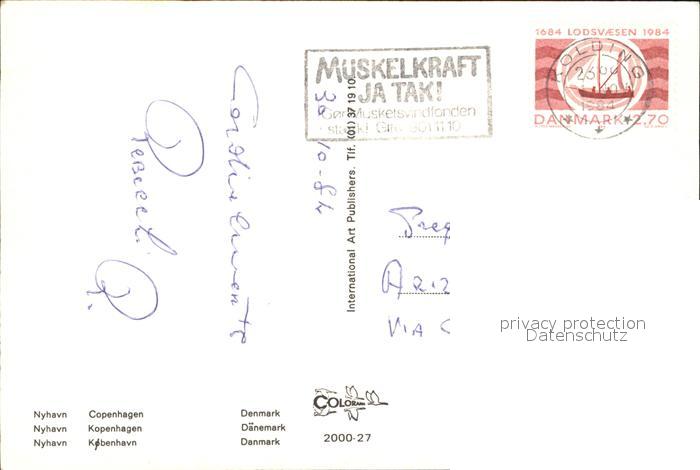 1684 LODSVÆSEN 1984
KOLDING
1984
DANMARK 2.70
MUSKELKRAFT
JA TAK!
Gør Muskelsvindfonden
stærk! Giro 901 11 10
Cordialmente
International Art Publishers. Tlf. (01) 37 19 10.
Preg
VIA C
privacy protection
Datenschutz
Nyhavn Copenhagen Denmark
Nyhavn Kopenhagen Dänemark
Nyhavn København Danmark
COLORAMA
2000-27